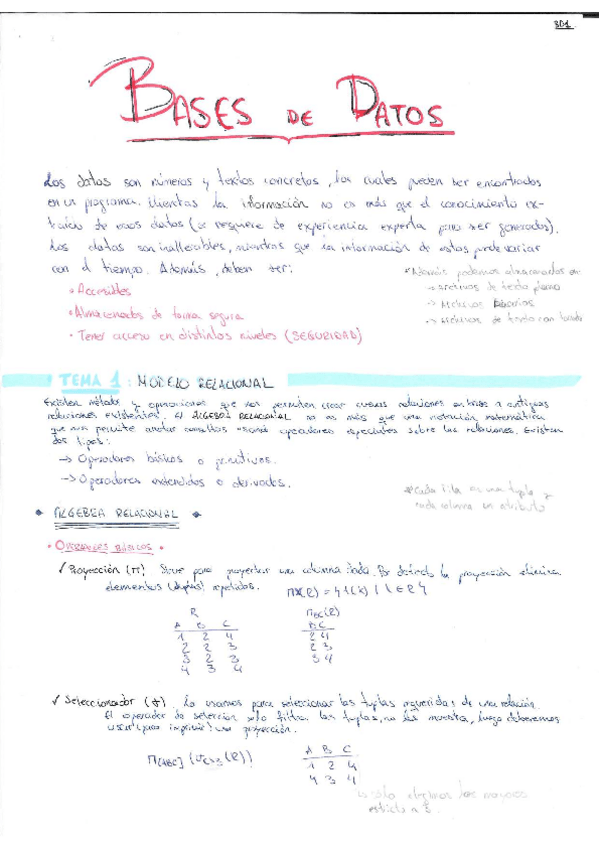 BD1
BASES DE DATOS
Los datos son números y textos concretos, los cuales pueden ser encontrados
en un programa. Mientras la información no es más que el conocimiento ex-
traído de esos datos (se requiere de experiencia experta para ser generados).
Los datos son inalterables, mientras que la información de estos puede variar
con el tiempo. Además, deben ser:
• Accesibles
• Almacenados de forma segura
• Tener acceso en distintos niveles (SEGURIDAD)
*Además podemos almacenarlos en:
→ archivos de texto plano
→ Archivos binarios
→ Archivos de texto con
TEMA 1: MODELO RELACIONAL
Existen métodos y operaciones que nos permiten crear nuevas relaciones en base a antiguas
relaciones existentes. El ÁLGEBRA RELACIONAL no es más que una notación matemática
que nos permite anotar consultas usando operadores especiales sobre las relaciones. Existen
dos tipos:
→ Operadores básicos o primitivos.
→ Operadores extendidos o derivados.
*cada fila es una tupla y
cada columna un atributo
• ÁLGEBRA RELACIONAL •
• OPERADORES BÁSICOS •
✓ Proyección (π) Sirve para proyectar una columna dada. Por defecto la proyección elimina
elementos (tuplas) repetidos.
R
A B C
1 2 4
2 2 3
3 2 3
4 3 4
π BC (R)
B C
2 4
2 3
3 4
✓ Seleccionador (σ) Lo usamos para seleccionar las tuplas requeridas de una relación.
El operador de selección sólo filtra las tuplas, no las muestra, luego deberemos
usar (para imprimir) una proyección.
Π[ABC] (σC>3 (R))
A B C
1 2 4
4 3 4
sólo elegimos los mayores
estricto a 3.